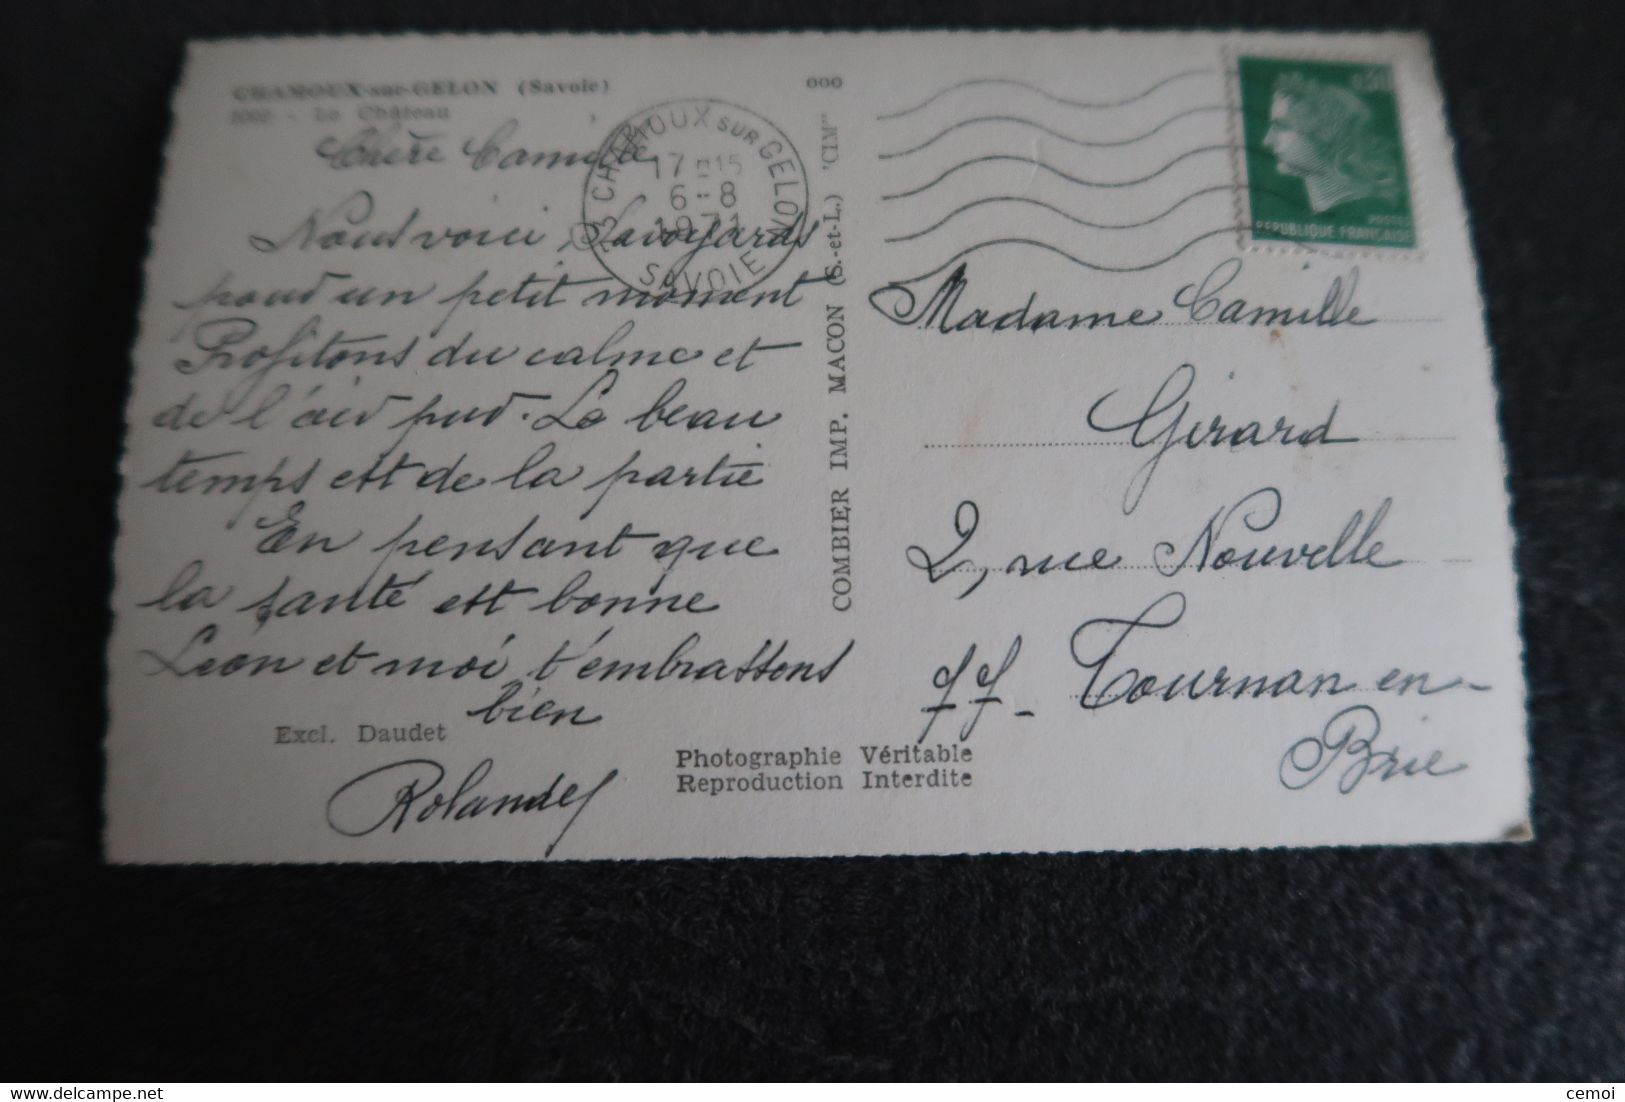 CHAMOUX-sur-GELON (Savoie)
- Le Château
Chère Camille
Nous voici, Savoyards
pour un petit moment
Profitons du calme et
de l'air pur. Le beau
temps est de la partie
En pensant que
la santé est bonne
Leon et moi t'embrassons
bien
Excl. Daudet
Rolande
Photographie Véritable
Reproduction Interdite
000
COMBIER IMP. MACON (S.-et-L.) "CIM"
73 CHAMOUX SUR GELON
17H15
6-8
1971
SAVOIE
POSTES
REPUBLIQUE FRANÇAISE
Madame Camille
Girard
2, rue Nouvelle
77_ Tournan en-
Brie
cemoi